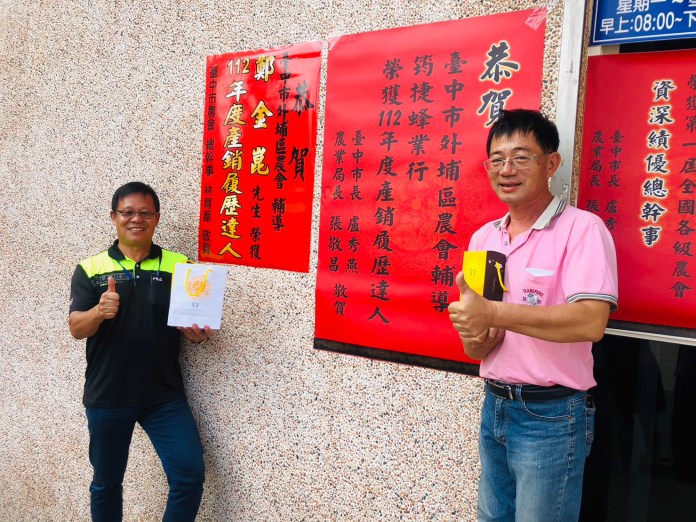 恭賀
臺中市外埔區農會 輔導
鄭金崑 先生 榮獲
112年度產銷履歷達人
臺中市農會 總幹事
敬賀
恭賀
臺中市外埔區農會輔導
筠捷蜂業行
榮獲112年度產銷履歷達人
臺中市長 盧秀燕
農業局長 張敬昌 敬賀
全國各級農會
資深績優總幹事
臺中市長 盧秀
農業局長 張
星期
早上:08:00~下